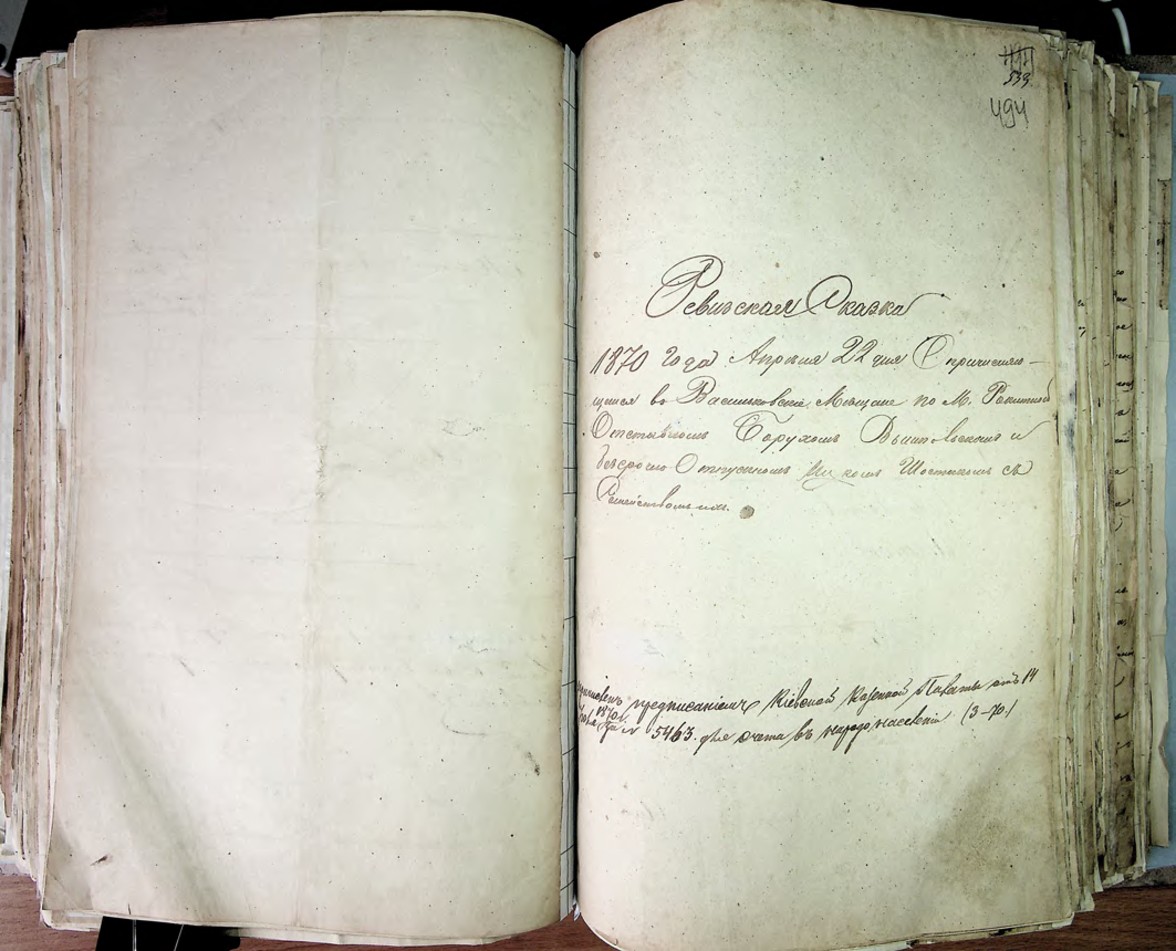 533
494
Ревизская Сказка
1870 года Апреля 22 дня О причисляю-
щимся въ Васильковские Мещане по М. Ракитной
Отставномъ Борухомъ
безсрочно Отпускномъ Шостакомъ съ
Семействомъ ихъ.
предписаніемъ Кіевской Казенной Палаты отъ 14
1870 г. № 5463. для счета въ народонаселеніи (3-70.)